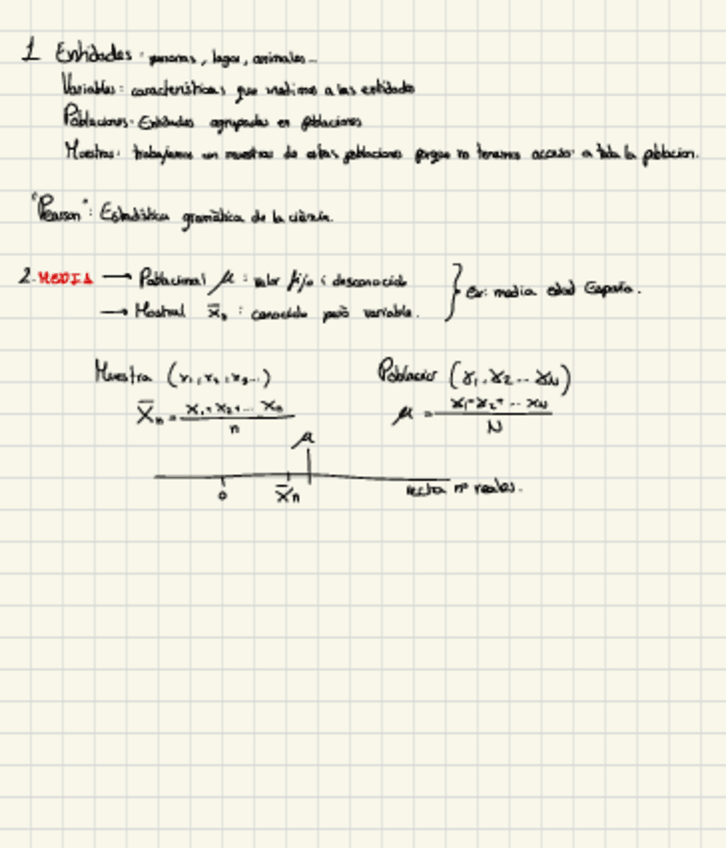 1 Entidades: personas, lagos, animales...
Variables: características que medimos a las entidades
Poblaciones: Entidades agrupadas en poblaciones
Muestras: trabajamos con muestras de estas poblaciones porque no tenemos acceso a toda la poblacion.
"Pearson": Estadística gramàtica de la ciència.
2. MEDIA → Poblacional μ: valor fijo i desconocido
→ Mostral x̄n: conocido però variable.
} Ex: media edad España.
Muestra (x1, x2, x3...)
Población (x1, x2 ... xN)
X̄n = x1+x2+... xn / n
μ = x1+x2+... xN / N
μ
0 X̄n recta nº reales.